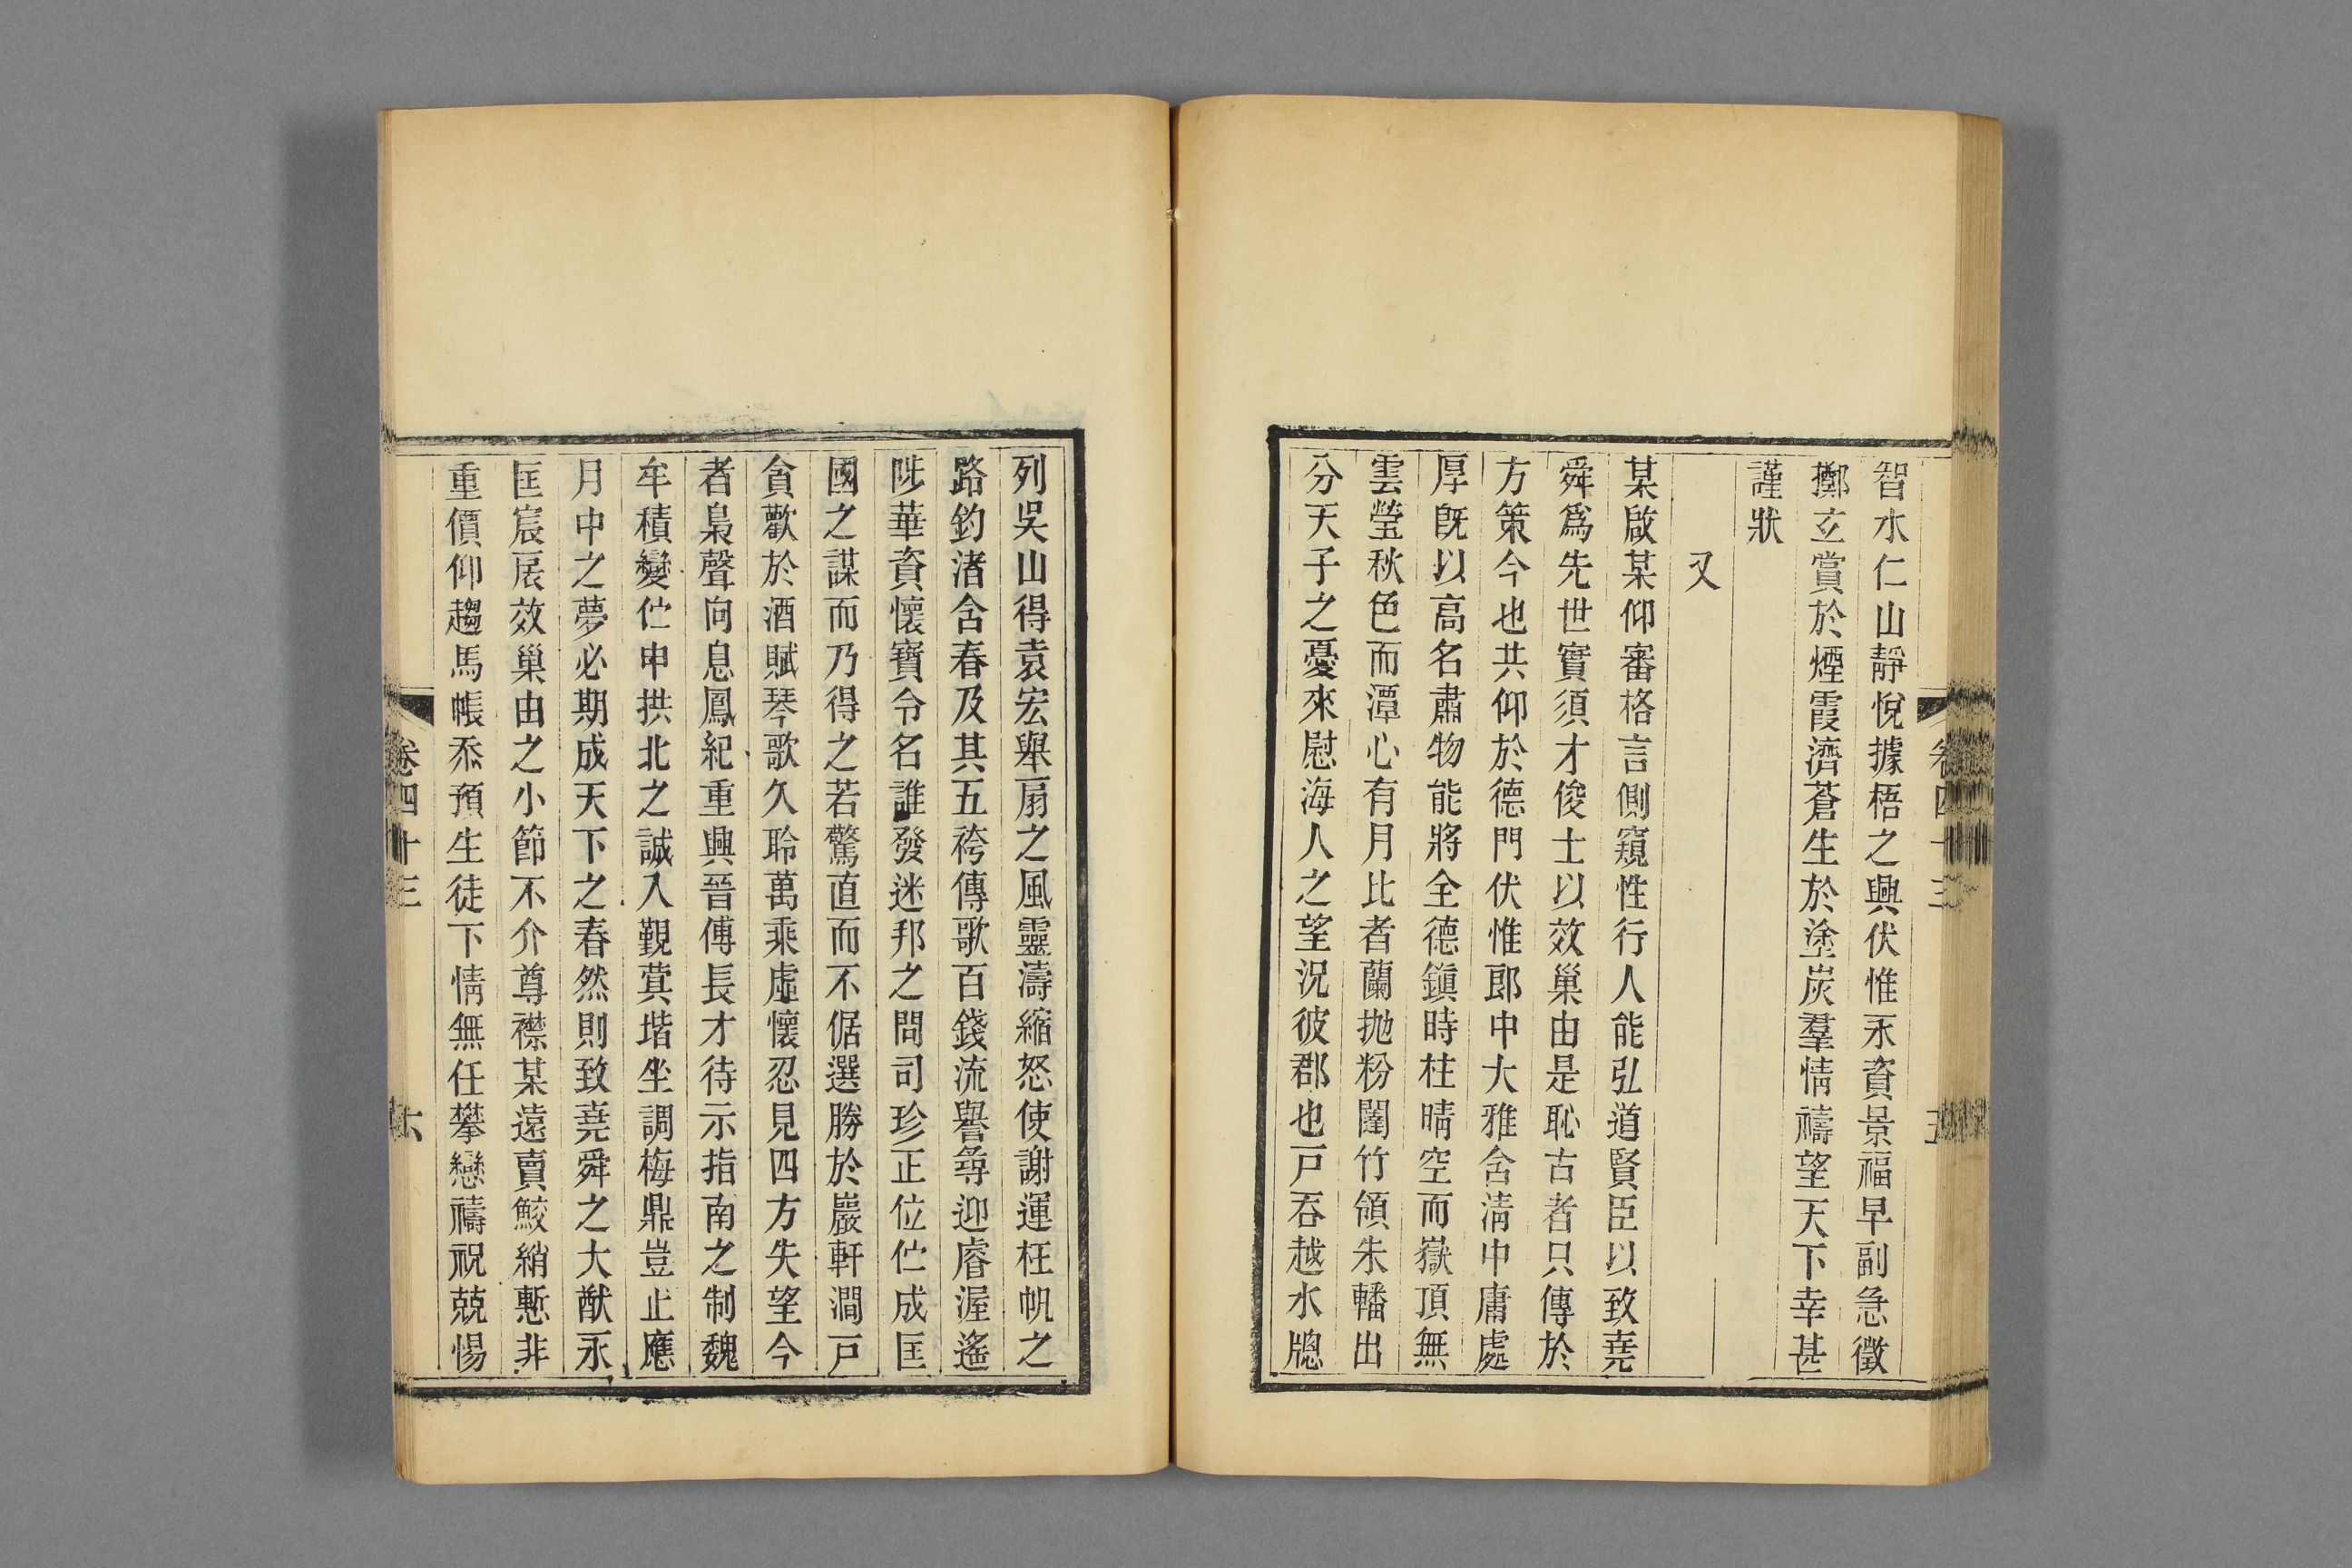 智水仁山靜悅據梧之興伏惟永資景福早副急徵
擲立賞於煙霞濟蒼生於塗炭羣情禱望天下幸甚
謹狀
又
某啟某仰審格言側窺性行人能弘道賢臣以致堯
舜爲先世實須才俊士以效巢由是恥古者只傳於
方策今也共仰於德門伏惟郎中大雅含淸中庸處
厚旣以高名肅物能將全德鎭時柱晴空而嶽頂無
雲瑩秋色而潭心有月比者蘭拋粉闈竹領朱轓出
分天子之憂來慰海人之望況彼郡也戸吞越水牕
卷四十三
五
列吳山得袁宏舉扇之風靈濤縮怒使謝運枉帆之
路釣渚含春及其五袴傳歌百錢流譽尋迎睿渥遙
陟華資懷寶令名誰發迷邦之問司珍正位伫成匡
國之謀而乃得之若驚直而不倨選勝於巖軒澗戸
貪歡於酒賦琴歌久聆萬乘虛懷忍見四方失望今
者梟聲向息鳳紀重興晉傅長才待示指南之制魏
牟積變伫申拱北之誠入覲蓂堦坐調梅鼎豈止應
月中之夢必期成天下之春然則致堯舜之大猷永
匡宸扆效巢由之小節不介尊襟某遠賣鮫綃慙非
重價仰趨馬帳忝預生徒下情無任攀戀禱祝兢惕
卷四十三
六